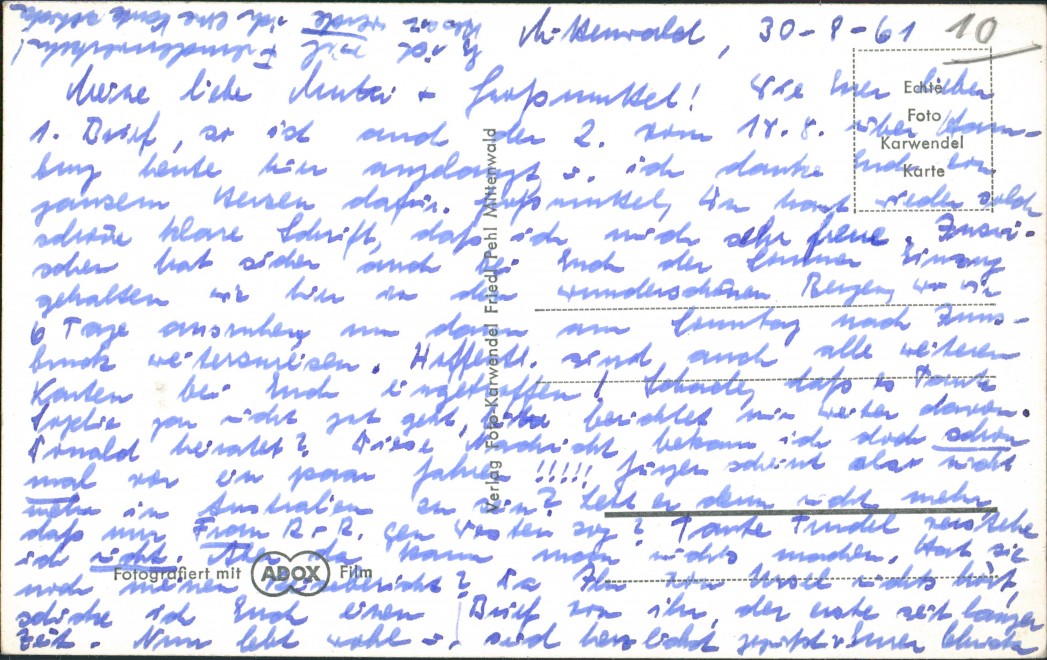 Mittenwald, 30-8-61 10
Meine liebe Mutti + Großmuttel! Wie Euer lieber
1. Brief, so ist auch der 2. vom 18.8. über Ham-
burg heute hier angelangt u. ich danke Euch von
ganzem Herzen dafür. Großmuttel, Du hast wieder solch
schöne klare Schrift, daß ich mich sehr freue. Inzwi-
schen hat sicher auch bei Euch der Sommer Einzug
gehalten wie hier in den wunderschönen Bergen, wo wir
6 Tage ausruhen, um dann am Sonntag nach Inns-
bruck weiterzureisen. Hoffentl. sind auch alle weiteren
Karten bei Euch eingetroffen! Schade, daß es Tante
Sophie gar nicht gut geht, bitte berichtet mir weiter davon.
heiratet? Diese Nachricht bekam ich doch schon
mal vor ein paar Jahren !!!!! Jürgen scheint also nicht
mehr in Australien zu sein? Lebt er denn nicht mehr
daß nun Frau R-R. gen Westen zog? Tante Trudel verstehe
ich nicht. Aber da kann man nichts machen. Hat sie
noch meinen Reisebericht? Da Ihr von Ursel nichts hört,
schicke ich Euch einen Brief von ihr, der erste seit langer
Zeit. Nun lebt wohl u. seid herzlichst gegrüßt v. Eurer
Echte
Foto
Karwendel
Karte
Verlag Foto-Karwendel Friedl Pehl Mittenwald
Fotografiert mit ADOX Film